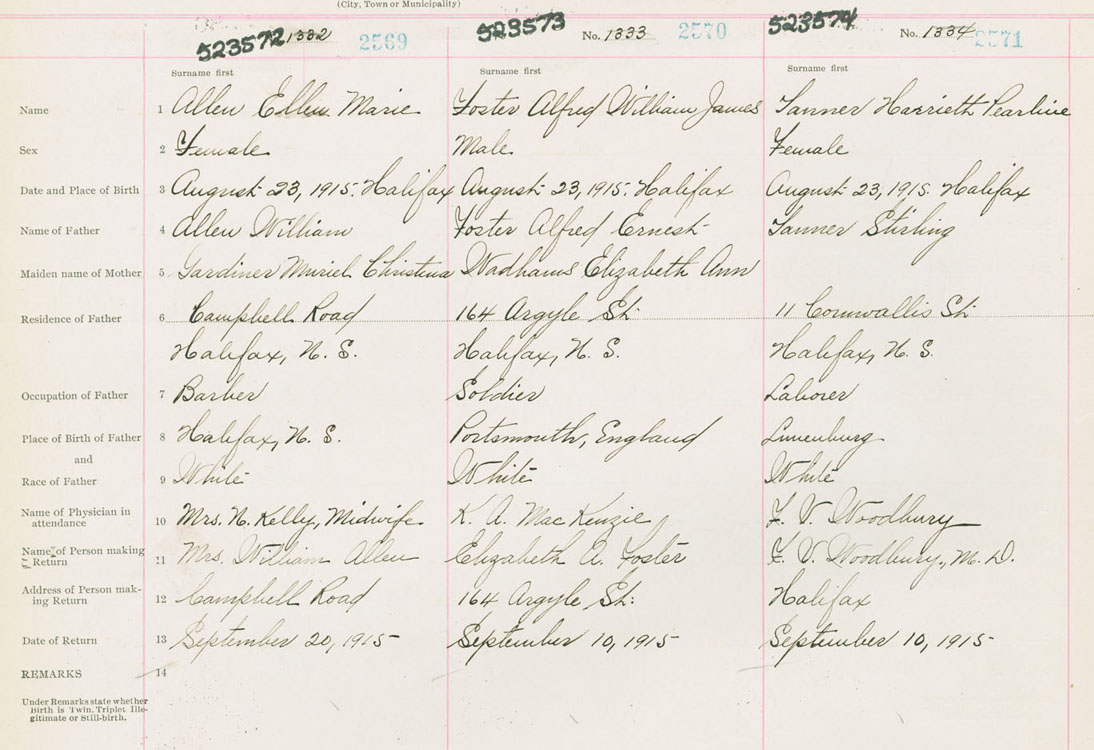 (City, Town or Municipality)
523572 1332 2569 523573 No. 1333 2570 523574 No. 1334 2571
Surname first Surname first Surname first
Name 1 Allen Ellen Marie Foster Alfred William James Tanner Harrieth Pearline
Sex 2 Female Male Female
Date and Place of Birth 3 August 23, 1915. Halifax August 23, 1915. Halifax August 23, 1915. Halifax
Name of Father 4 Allen William Foster Alfred Ernest Tanner Stirling
Maiden name of Mother 5 Gardiner Muriel Christina Wadhams Elizabeth Ann
Residence of Father 6 Campbell Road 164 Argyle St. 11 Cornwallis St.
Halifax, N. S. Halifax, N. S. Halifax, N. S.
Occupation of Father 7 Barber Soldier Laborer
Place of Birth of Father 8 Halifax, N. S. Portsmouth, England Lunenburg
and
Race of Father 9 White White White
Name of Physician in
attendance 10 Mrs. N. Kelly, Midwife K. A. MacKenzie F. V. Woodbury
Name of Person making
Return 11 Mrs. William Allen Elizabeth A. Foster F. V. Woodbury, M. D.
Address of Person mak-
ing Return 12 Campbell Road 164 Argyle St: Halifax
Date of Return 13 September 20, 1915 September 10, 1915 September 10, 1915
REMARKS 14
Under Remarks state whether
Birth is Twin, Triplet, Ille-
gitimate or Still-birth.